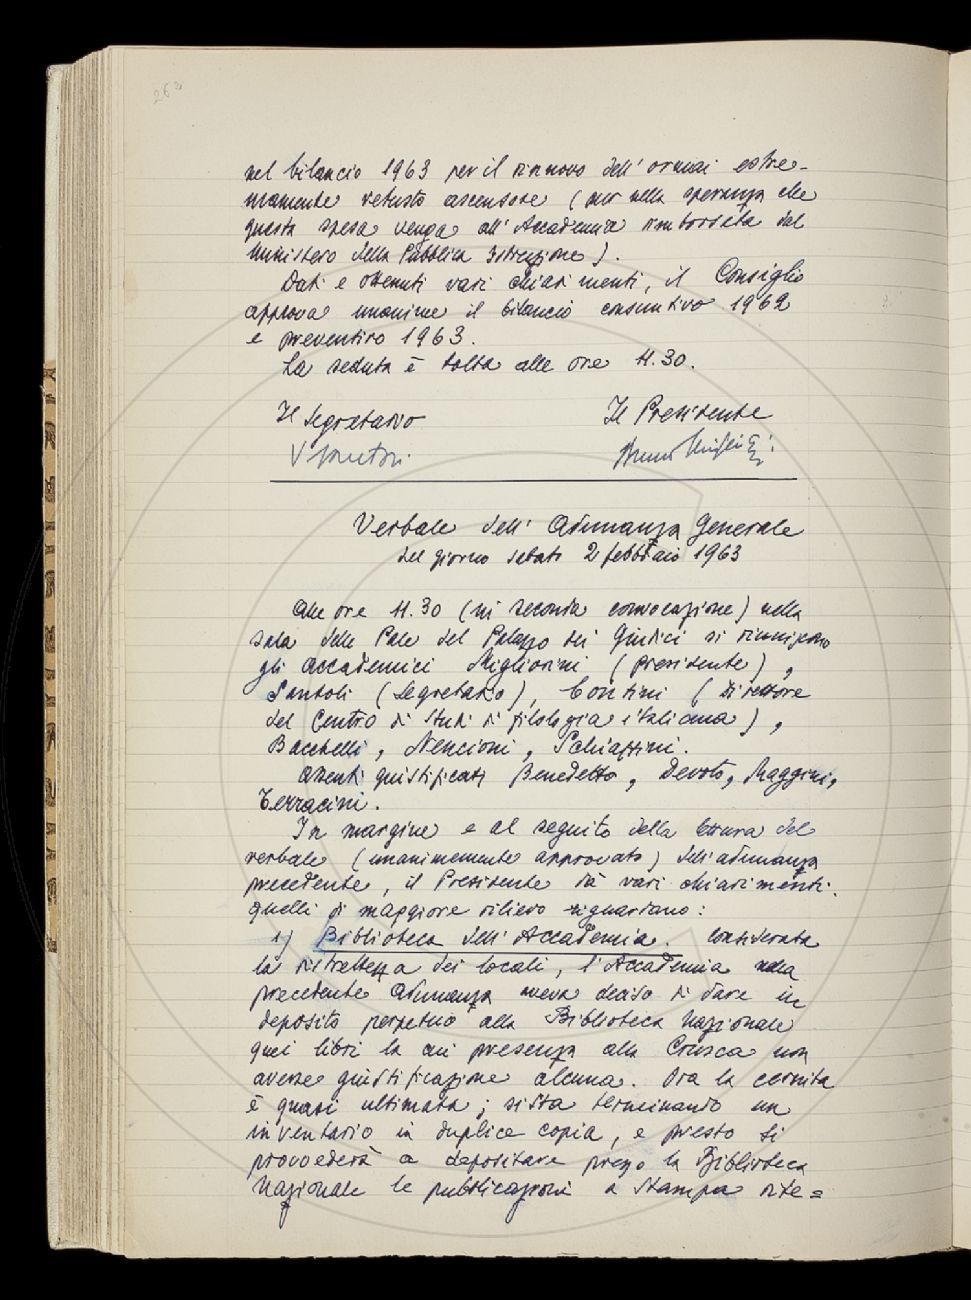 262
nel bilancio 1963 per il rinnovo dell'ormai estre-
mamente vetusto ascensore (pur nella speranza che
questa spesa venga all'Accademia rimborsata dal
Ministero della Pubblica Istruzione).
Dati e ottenuti vari chiarimenti, il Consiglio
approva unanime il bilancio consuntivo 1962
e preventivo 1963.
La seduta è tolta alle ore 11.30.
Il Segretario Il Presidente
V Santoli Bruno Migliorini
Verbale dell'Adunanza Generale
del giorno sabato 2 febbraio 1963
Alle ore 11.30 (in seconda convocazione) nella
sala delle Pale del Palazzo dei Giudici si riuniscono
gli accademici Migliorini (presidente),
Santoli (Segretario), Contini (Direttore
del Centro di Studi di filologia italiana),
Bacchelli, Nencioni, Schiaffini.
Assenti giustificati Benedetto, Devoto, Maggini,
Terracini.
In margine e al seguito della lettura del
verbale (unanimemente approvato) dell'adunanza
precedente, il Presidente dà vari chiarimenti.
Quelli di maggiore rilievo riguardano:
1) Biblioteca dell'Accademia. Considerata
la ristrettezza dei locali, l'Accademia nella
precedente Adunanza aveva deciso di dare in
deposito perpetuo alla Biblioteca Nazionale
quei libri la cui presenza alla Crusca non
avesse giustificazione alcuna. Ora la cernita
è quasi ultimata; si sta terminando un
inventario in duplice copia, e presto si
provvederà a depositare presso la Biblioteca
Nazionale le pubblicazioni a stampa rite=